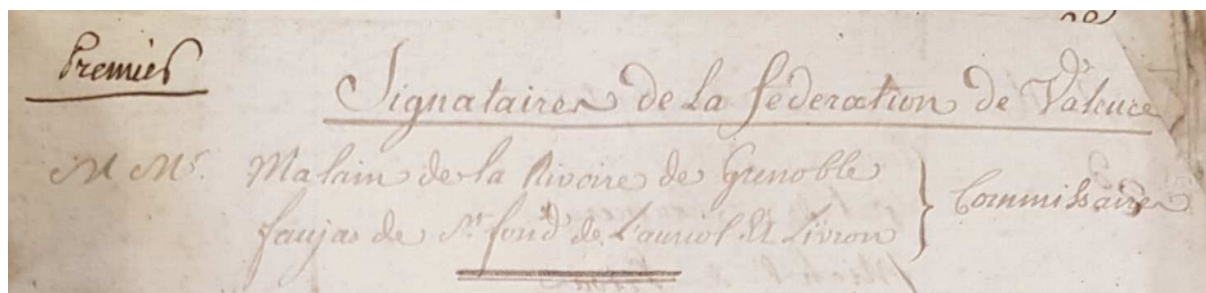 Premier
Signataires de la féderation de Valence
M Mrs. Malain de la Rivoire de Grenoble
faujas de St. fond de Lauriol Et Livron
Commissaires